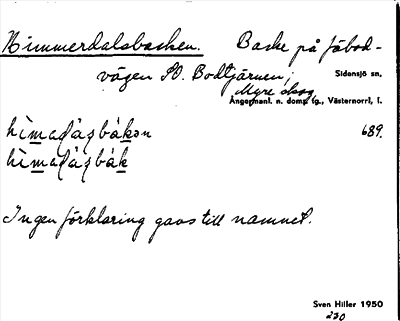 Himmerdalsbacken. Backe på fäbod-
vägen SO. Bodtjärnen,
Sidensjö sn,
Myre skog
Ångermanl. n. doms. fg., Västernorrl. l.
hìmadàʃbàkən 689.
hìmadàʃbàk
Ingen förklaring gavs till namnet.
Sven Hiller 1950
230